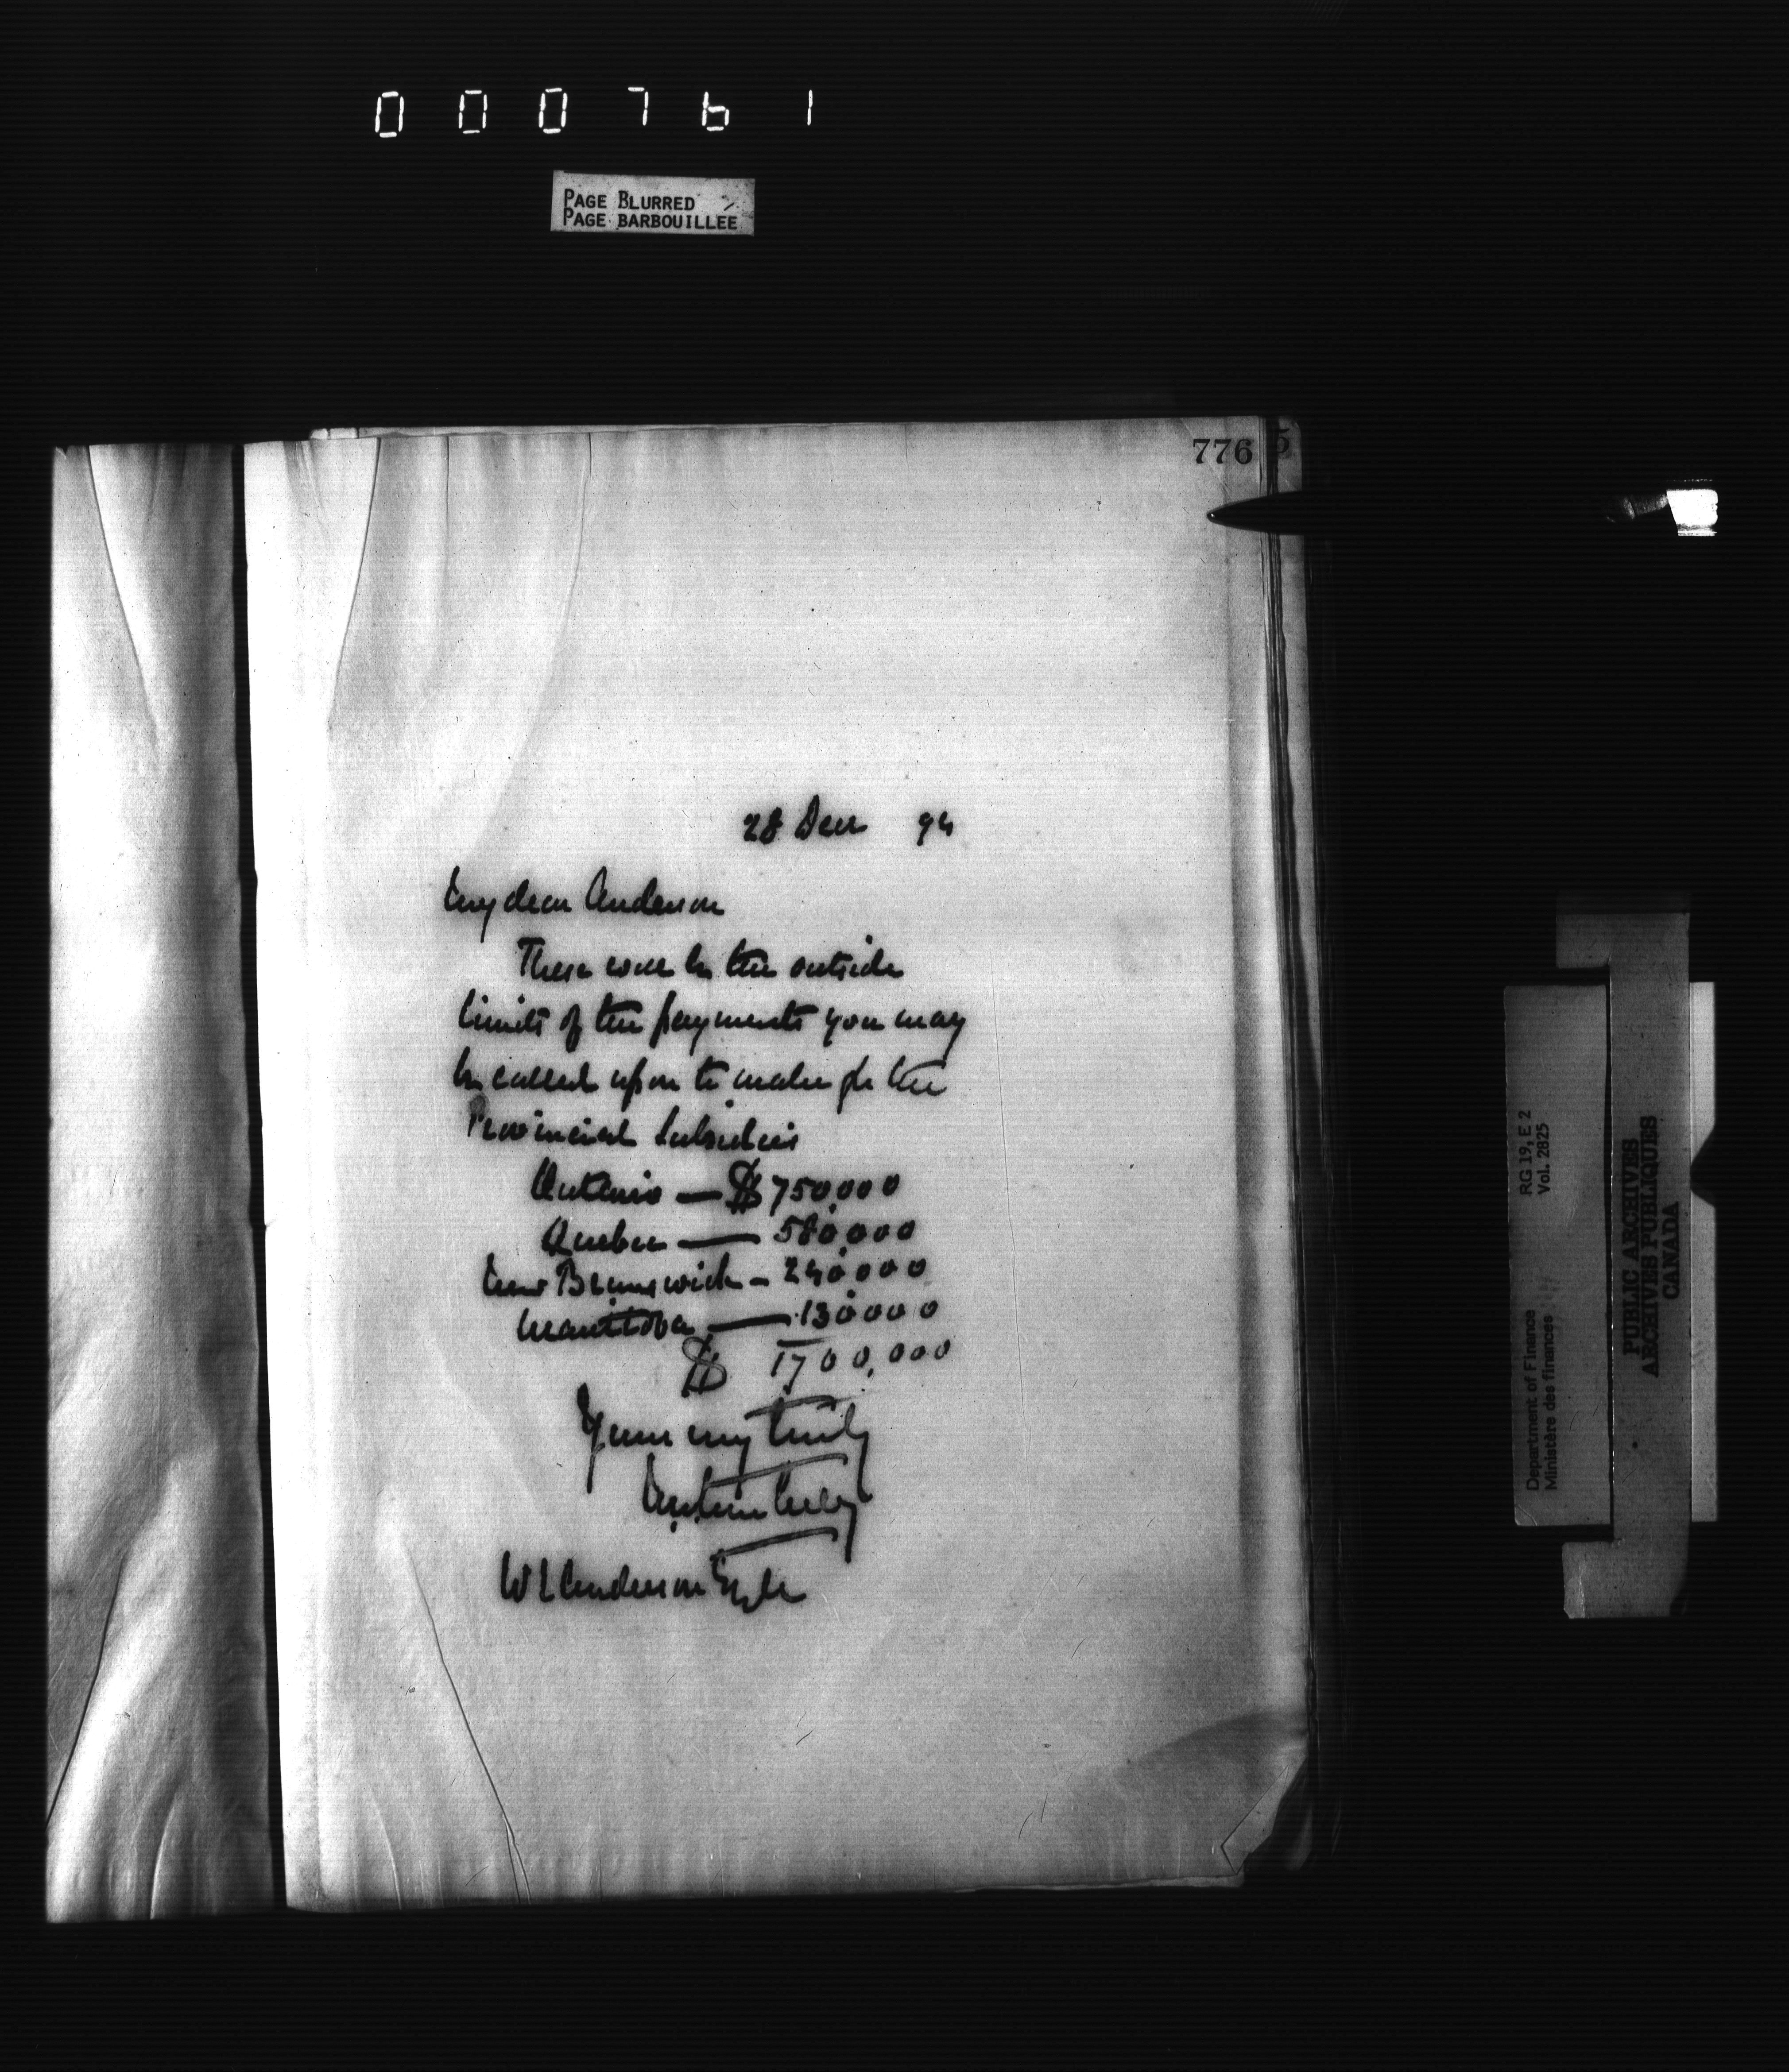 000761
PAGE BLURRED
PAGE BARBOUILLEE
776
28 Decr 94
My dear Anderson
These will be the outside
limits of the payments you may
be called upon to make for the
Provincial Subsidies
Ontario — $750,000
Quebec — 580,000
New Brunswick - 240,000
Manitoba — 130,000
$ 1700,000
Yours very truly
W L Anderson Esqre
RG 19, E 2
Vol. 2825
Department of Finance
Ministère des finances
PUBLIC ARCHIVES
ARCHIVES PUBLIQUES
CANADA